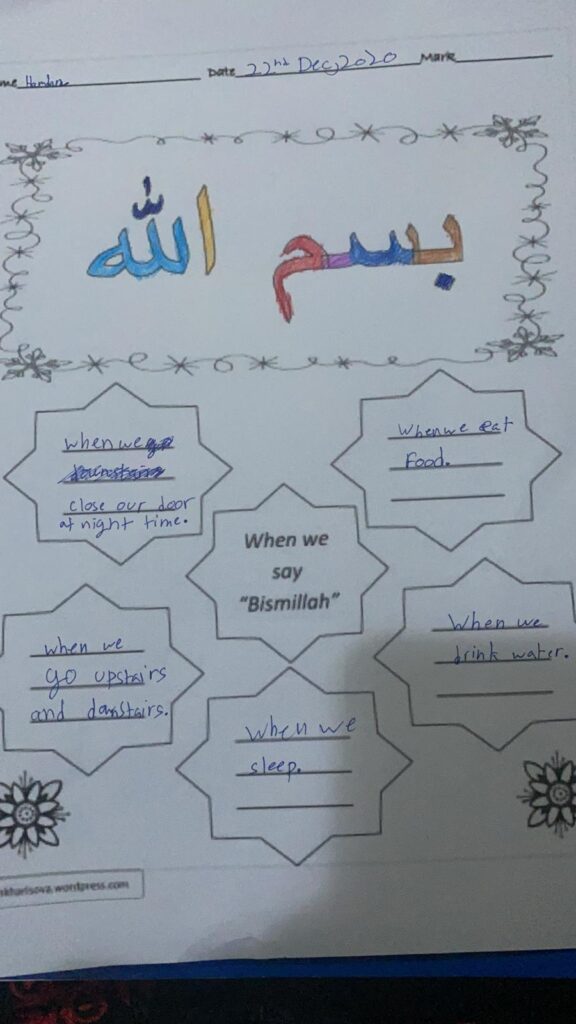 Date 22nd Dec, 2020 Mark
بسم الله
when we
close our door
at night time.
When we eat
Food.
When we
say
"Bismillah"
when we
go upstairs
and danstairs.
When we
drink water.
When we
sleep.
skharisova.wordpress.com